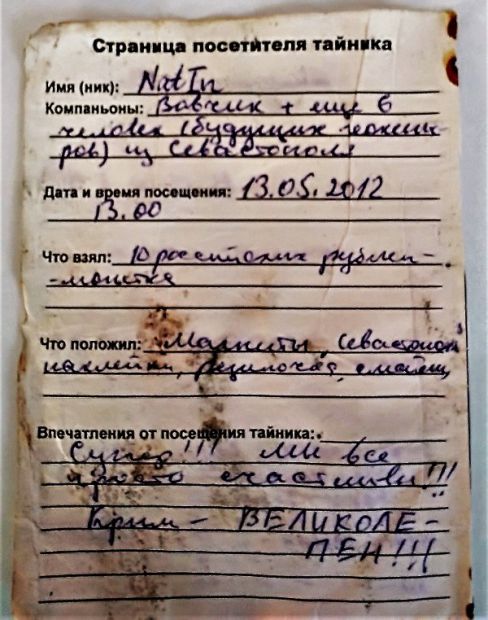 Страница посетителя тайника
Имя (ник): NatIn
Компаньоны: Вовчик + еще 6
человек (будущих геокеш-
ров) из Севастополя
Дата и время посещения: 13.05.2012
13.00
Что взял: 10 российских рублей-
-монетка
Что положил: Магниты, Севастополь
наклейки,
Впечатления от посещения тайника:
Супер!!! Мы все
просто счастливы!!!
Крым - ВЕЛИКОЛЕ-
ПЕН!!!